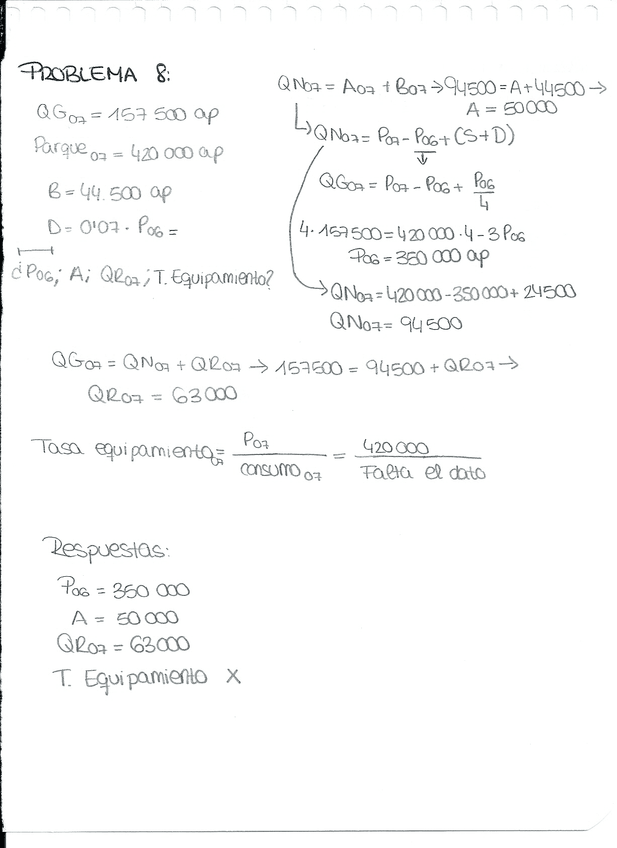 PROBLEMA 8:
QG07 = 157 500 ap
Parque07 = 420 000 ap
B = 44.500 ap
D = 0'07 · P06 =
¿P06; A; QR07; T. Equipamiento?
QN07 = A07 + B07 → 94500 = A + 44500 →
A = 50000
QN07 = P07 - P06 + (S+D)
QG07 = P07 - P06 + P06/4
4 · 157500 = 420000 · 4 - 3 P06
P06 = 350 000 ap
QN07 = 420000 - 350000 + 24500
QN07 = 94500
QG07 = QN07 + QR07 → 157500 = 94500 + QR07 →
QR07 = 63000
Tasa equipamiento07 = P07 / consumo07 = 420000 / Falta el dato
Respuestas:
P06 = 350 000
A = 50000
QR07 = 63000
T. Equipamiento X